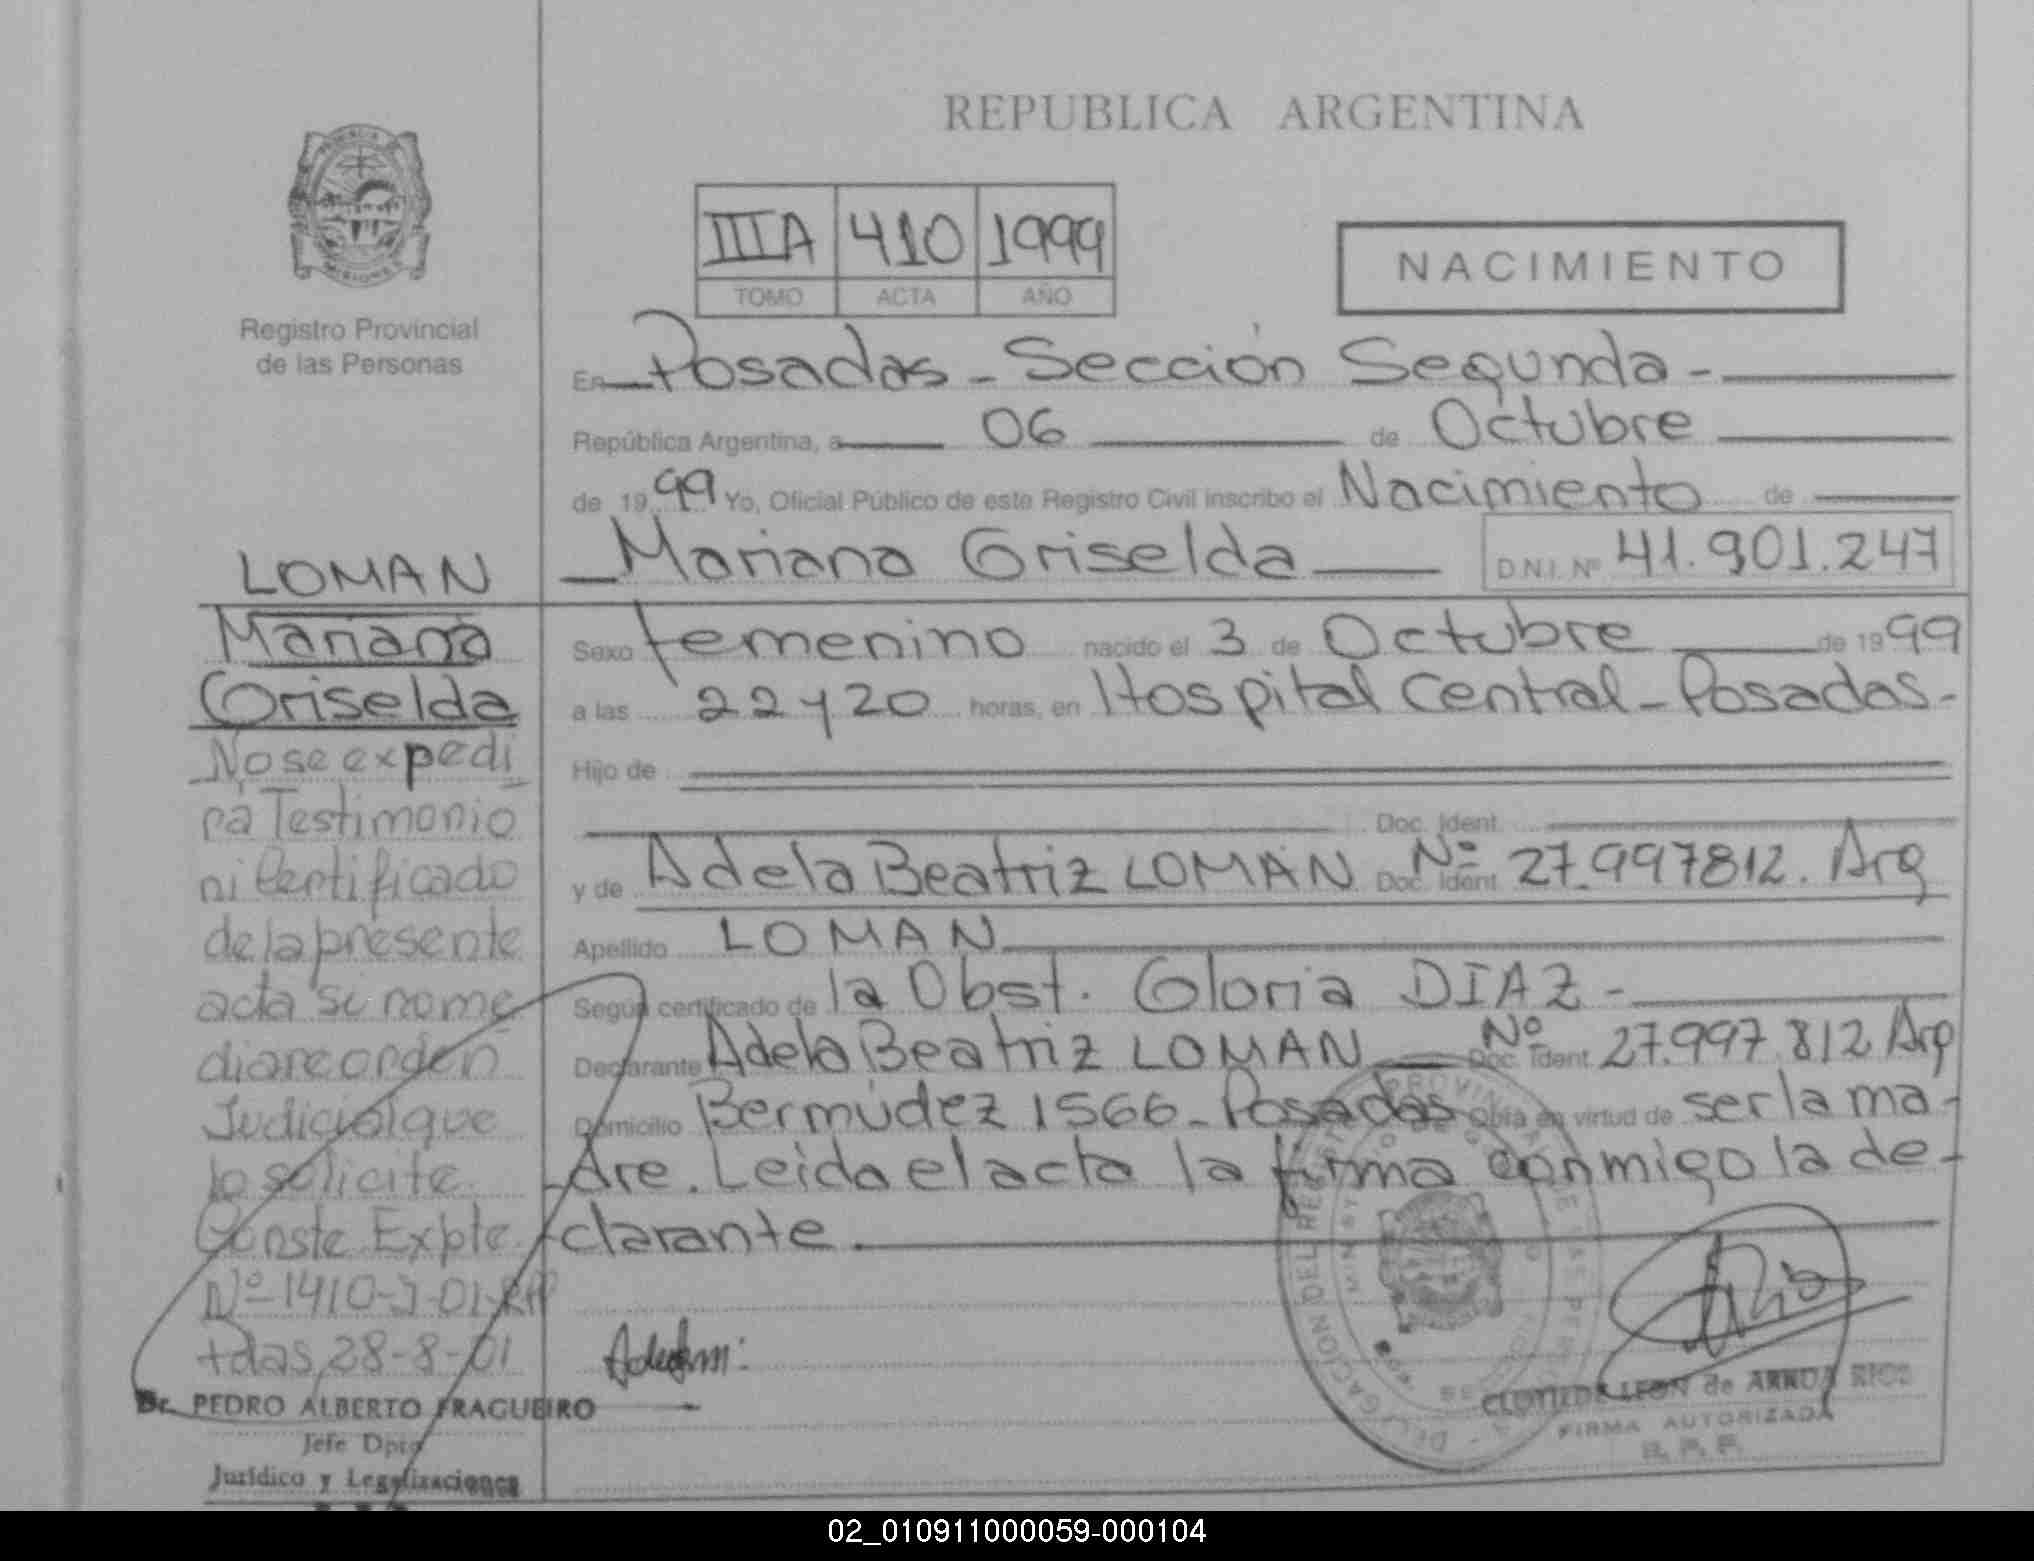 REPUBLICA ARGENTINA
PROVINCIA
MISIONES
Registro Provincial
de las Personas
IIIA 410 1999
TOMO ACTA AÑO
NACIMIENTO
En Posadas - Sección Segunda -
República Argentina, a 06 de Octubre
de 1999 Yo, Oficial Público de este Registro Civil inscribo el Nacimiento de
Mariana Griselda D.N.I. Nº 41.901.247
Sexo femenino nacido el 3 de Octubre de 1999
a las 22 y 20 horas, en Hospital Central - Posadas -
Hijo de
Doc. Ident.
y de Adela Beatriz LOMAN Doc. Ident. Nº 27.997812. Arg
Apellido LOMAN
Según certificado de la Obst. Gloria DIAZ -
Declarante Adela Beatriz LOMAN Doc. Ident. Nº 27.997.812 Arg
Domicilio Bermúdez 1566 - Posadas Obra en virtud de ser la ma-
dre. Leída el acta la firma conmigo la de-
clarante.
LOMAN
Mariana
Griselda
No se expedi
rá Testimonio
ni Certificado
de la presente
acta si no me
diare orden
Judicial que
lo solicite.
Conste. Expte.
Nº 1410-J-01-RP
Pdas, 28-8-01
Dr. PEDRO ALBERTO FRAGUEIRO
Jefe Dpto
Jurídico y Legalizaciones
CLOTILDE LEON de ARRUA RIOS
FIRMA AUTORIZADA
R. P. P.
02_010911000059-000104